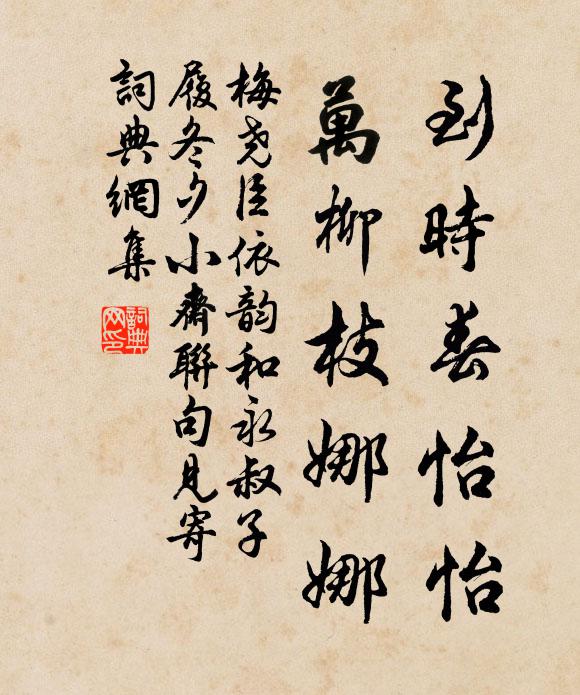 到時春怡怡
萬柳枝娜娜
梅堯臣依韵和永叔子
履冬夕小齋聯句見寄
詞典網集
詞典网印